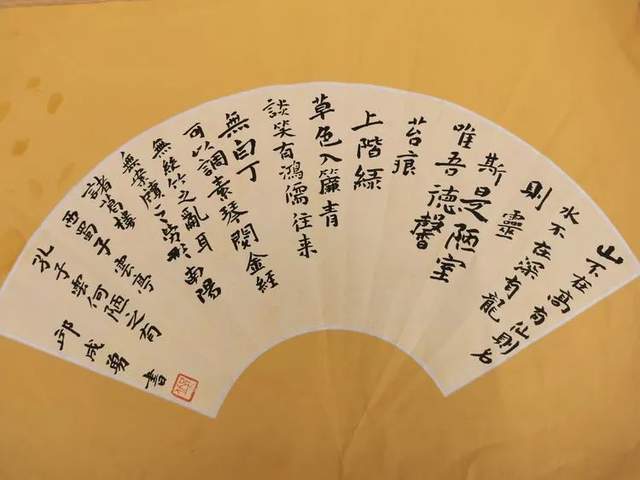 山不在高有仙則名
水不在深有龍
則靈
斯是陋室
唯吾德馨
苔痕
上階綠
草色入簾青
談笑有鴻儒往来
無白丁
可以調素琴閱金經
無絲竹之亂耳
無案牘之勞形南陽
諸葛
西蜀子雲亭
孔子雲何陋之有
邱成勇書